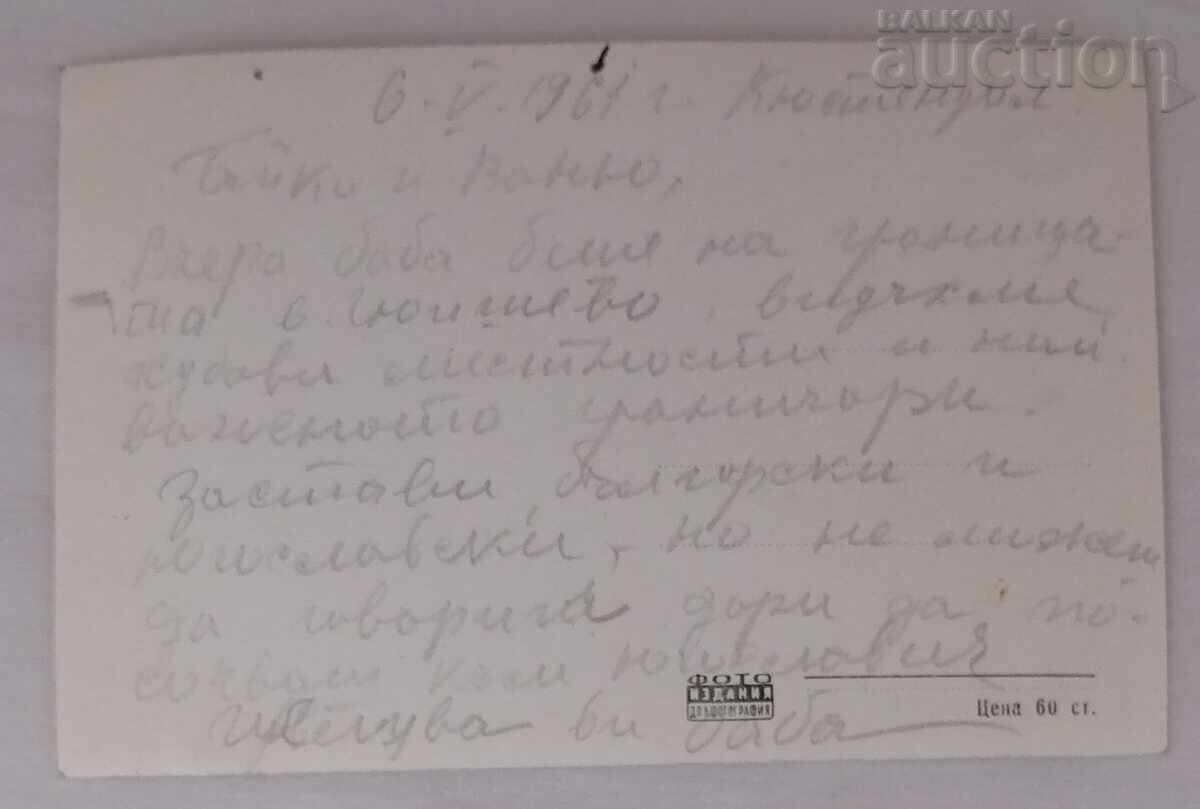 BALKAN
auction
6. V. 1961 г. Кюстендил
и Ваньо,
Вчера баба беше на граница-
та в. Гюешево, видяхме
хубави местности и най
важеното граничари.
Застави български и
югославски, но не може
да говориш дори да по-
сочваш към Югославия
Целува ви баба
ФОТО
ИЗДАНИЯ
Цена 60 ст.